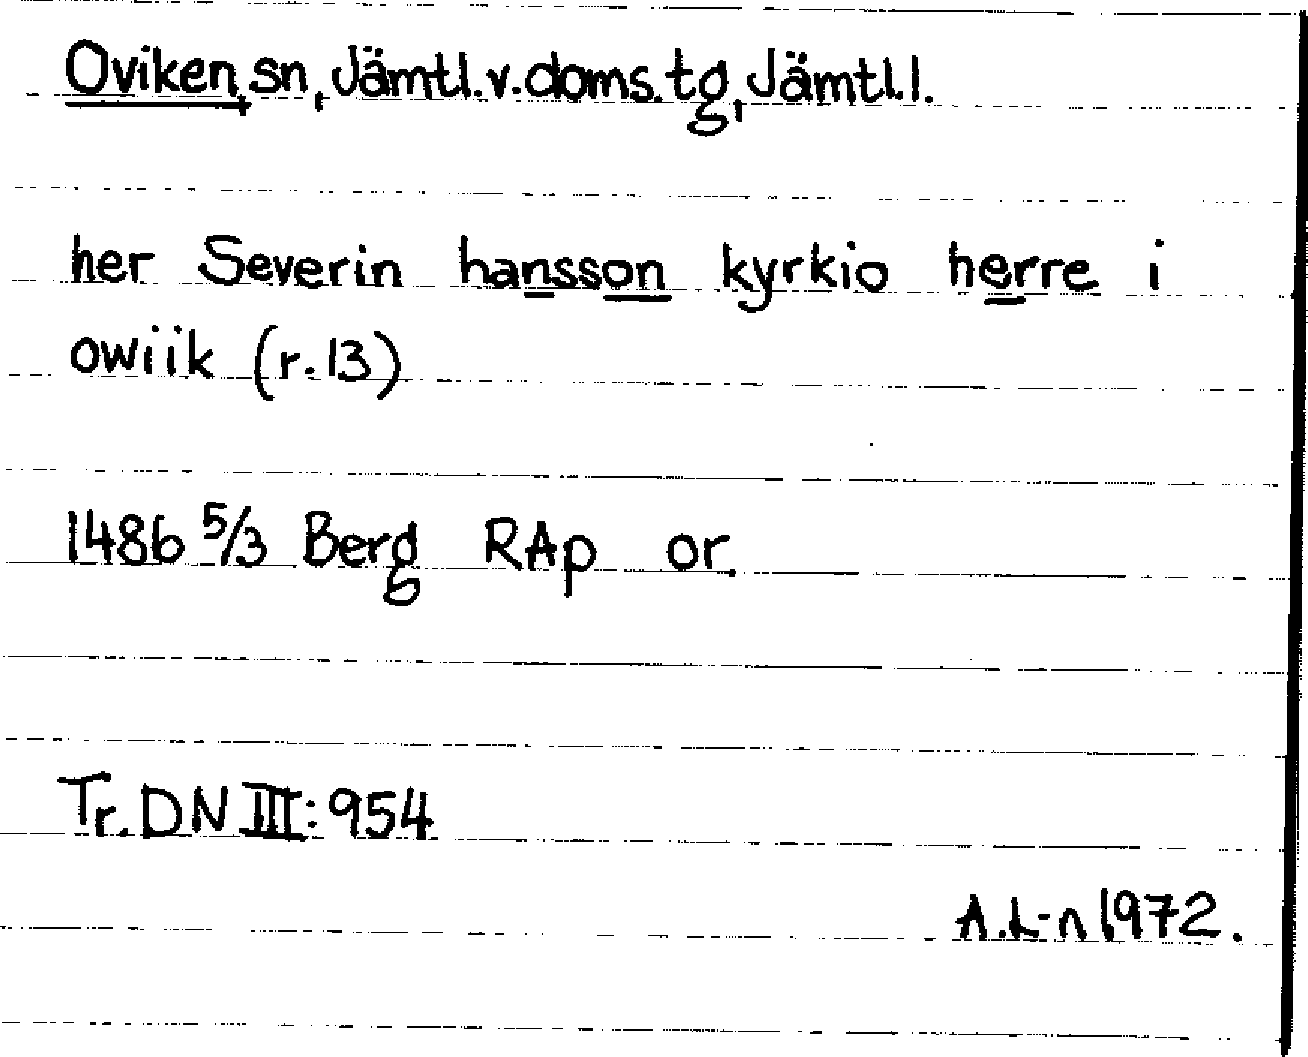 Oviken, sn, Jämtl.v.doms.tg, Jämtl.l.
her Severin hansson kyrkio herre i
owiik (r.13)
1486 5/3 Berg RAp or.
Tr. DN III:954
A.L-n 1972.